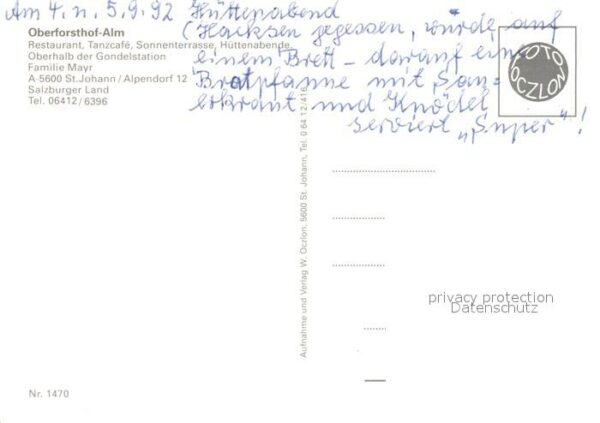 Am 4. n. 5.9.92 Hüttenabend
(Hacksen gegessen, wurde auf
einem Brett – darauf eine
Bratpfanne mit Sau=
erkraut und Knödel
serviert „Super"!
Oberforsthof-Alm
Restaurant, Tanzcafé, Sonnenterrasse, Hüttenabende,
Oberhalb der Gondelstation
Familie Mayr
A-5600 St.Johann / Alpendorf 12
Salzburger Land
Tel. 06412 / 6396
FOTO
OCZLON
Aufnahme und Verlag W. Oczlon, 5600 St. Johann, Tel. 0 64 12/416
privacy protection
Datenschutz
Nr. 1470